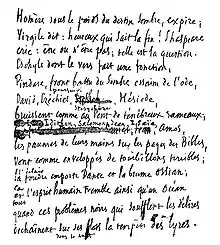 Homère sous le poids du destin sombre, expire ;
Virgile dit : heureux qui sait la fin ! Shakspeare
crie : être ou n'être pas ; telle est la question.
Eschyle dont le vers fait une fonction,
Pindare, front frère du sombre essaim de l'ode,
David, Ezéchiel, Stésichore, Hésiode,
frémissent comme au vent de ténébreux rameaux,
Amos,
les paumes de leurs mains sur les pages des Bibles,
Vont comme enveloppés de tourbillons terribles ;
emporte Dante et la brume Ossian ;
l'esprit humain tremble ainsi qu'un océan
quand ces problèmes noirs qui soufflent les délires
déchaînent sur ses flots la tempête des lyres.